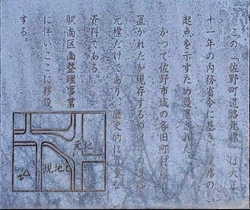 この「佐野町道路元標」は大正
十一年の内務省令に基き道路の
起点を示すため設置された。
かつて佐野市域の各旧町村に
置かれたが現存するのは
元標だけであり歴史的に貴重な
資料である。
駅南区画整理事業
に伴いここに移設
する。
元地
現地